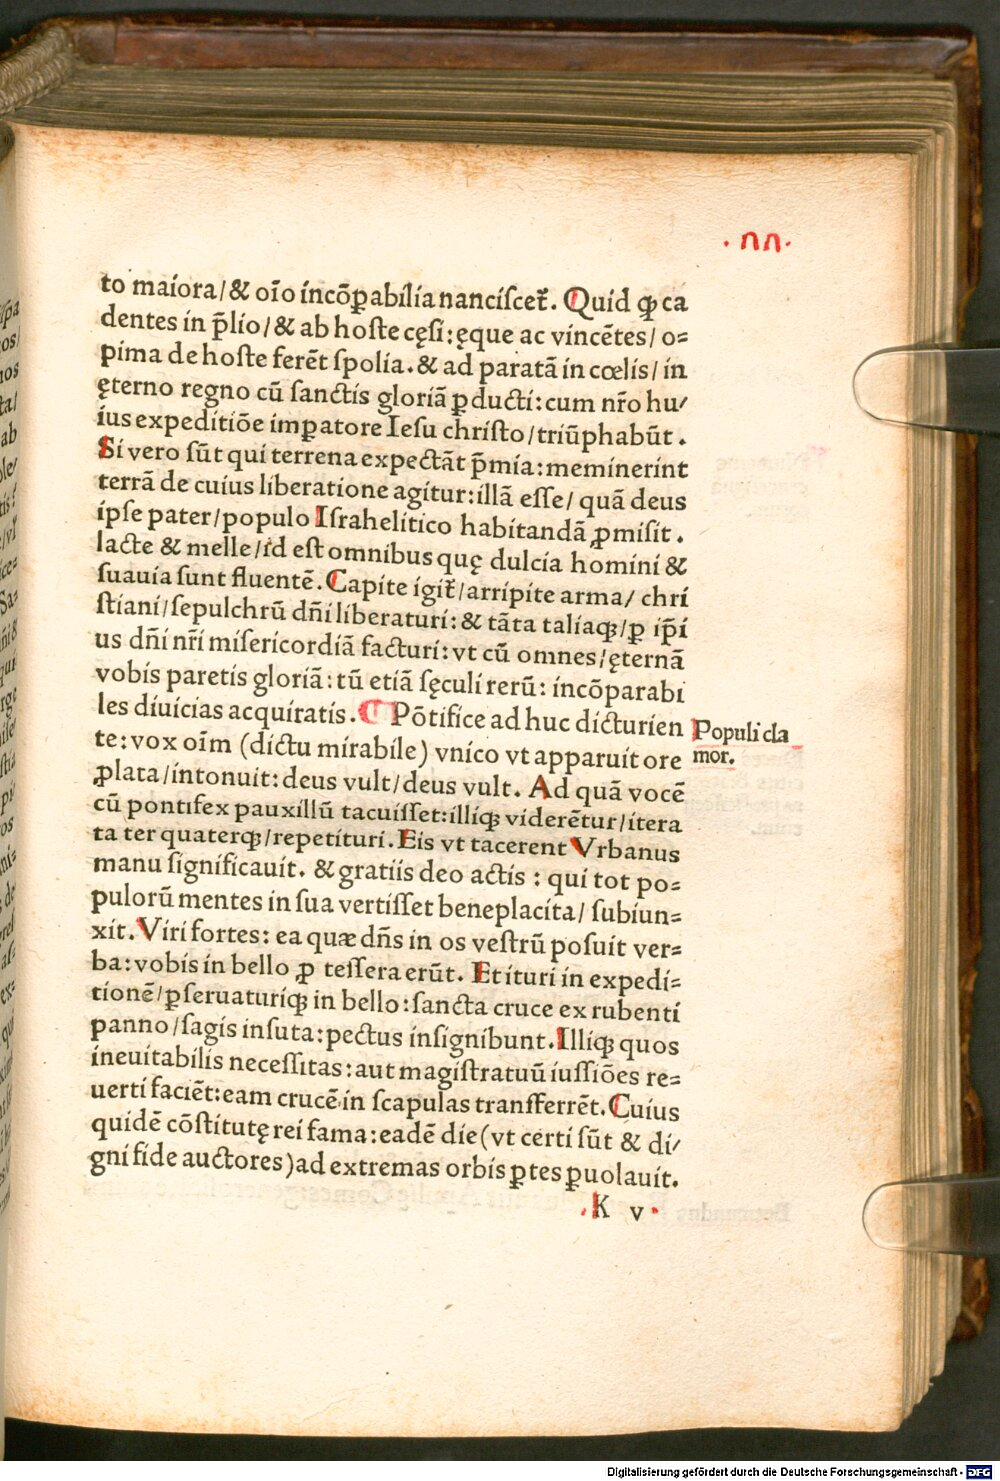 .nn.
to maiora/& oı̄o incōꝑabilia nanciscet᷑. Quid ꝙ ca
dentes in p̄lio/& ab hoste cęsi:ęque ac vincētes/o=
pima de hoste ferēt spolia.& ad paratā in cœlis/in
ęterno regno cū sanctis gloriā ꝑducti:cum nr̄o hu/
ius expeditiōe imꝑatore Iesu christo/triūphabūt.
Si vero sūt qui terrena expectāt p̄mia:meminerint
terrā de cuius liberatione agitur:illā esse/quā deus
ipse pater/populo Israhelitico habitandā ꝓmisit.
lacte & melle/id est omnibus quę dulcia homini &
suauia sunt fluentē.Capite igit᷑/arripite arma/chri
stiani/sepulchrū dn̄i liberaturi:& tāta taliaqꝫ/ꝑ ip̄i
us dn̄i nr̄i misericordiā facturi:vt cū omnes/ęternā
vobis paretis gloriā:tū etiā sęculi rerū:incōparabi
les diuicias acquiratis.¶ Pōtifice ad huc dicturien
te:vox oı̄m (dictu mirabile) vnico vt apparuit ore
ꝓlata/intonuit:deus vult/deus vult. Ad quā vocē
cū pontifex pauxillū tacuisset:illiqꝫ viderētur/itera
ta ter quaterqꝫ/repetituri.Eis vt tacerent Vrbanus
manu significauit. & gratiis deo actis : qui tot po=
pulorū mentes in sua vertisset beneplacita/ subiun=
xit.Viri fortes: ea quæ dn̄s in os vestrū posuit ver=
ba:vobis in bello ꝓ tessera erūt. Et ituri in expedi=
tionē/ꝑseruaturiqꝫ in bello:sancta cruce ex rubenti
panno/sagis insuta:pectus insignibunt.Illiqꝫ quos
ineuitabilis necessitas:aut magistratuū iussiōes re=
uerti faciēt:eam crucē in scapulas transferrēt.Cuius
quidē cōstitutę rei fama:eadē die(vt certi sūt & di/
gni fide auctores)ad extremas orbis ꝑtes ꝑuolauit.
Populi cla
mor.
.K v.
Digitalisierung gefördert durch die Deutsche Forschungsgemeinschaft - DFG